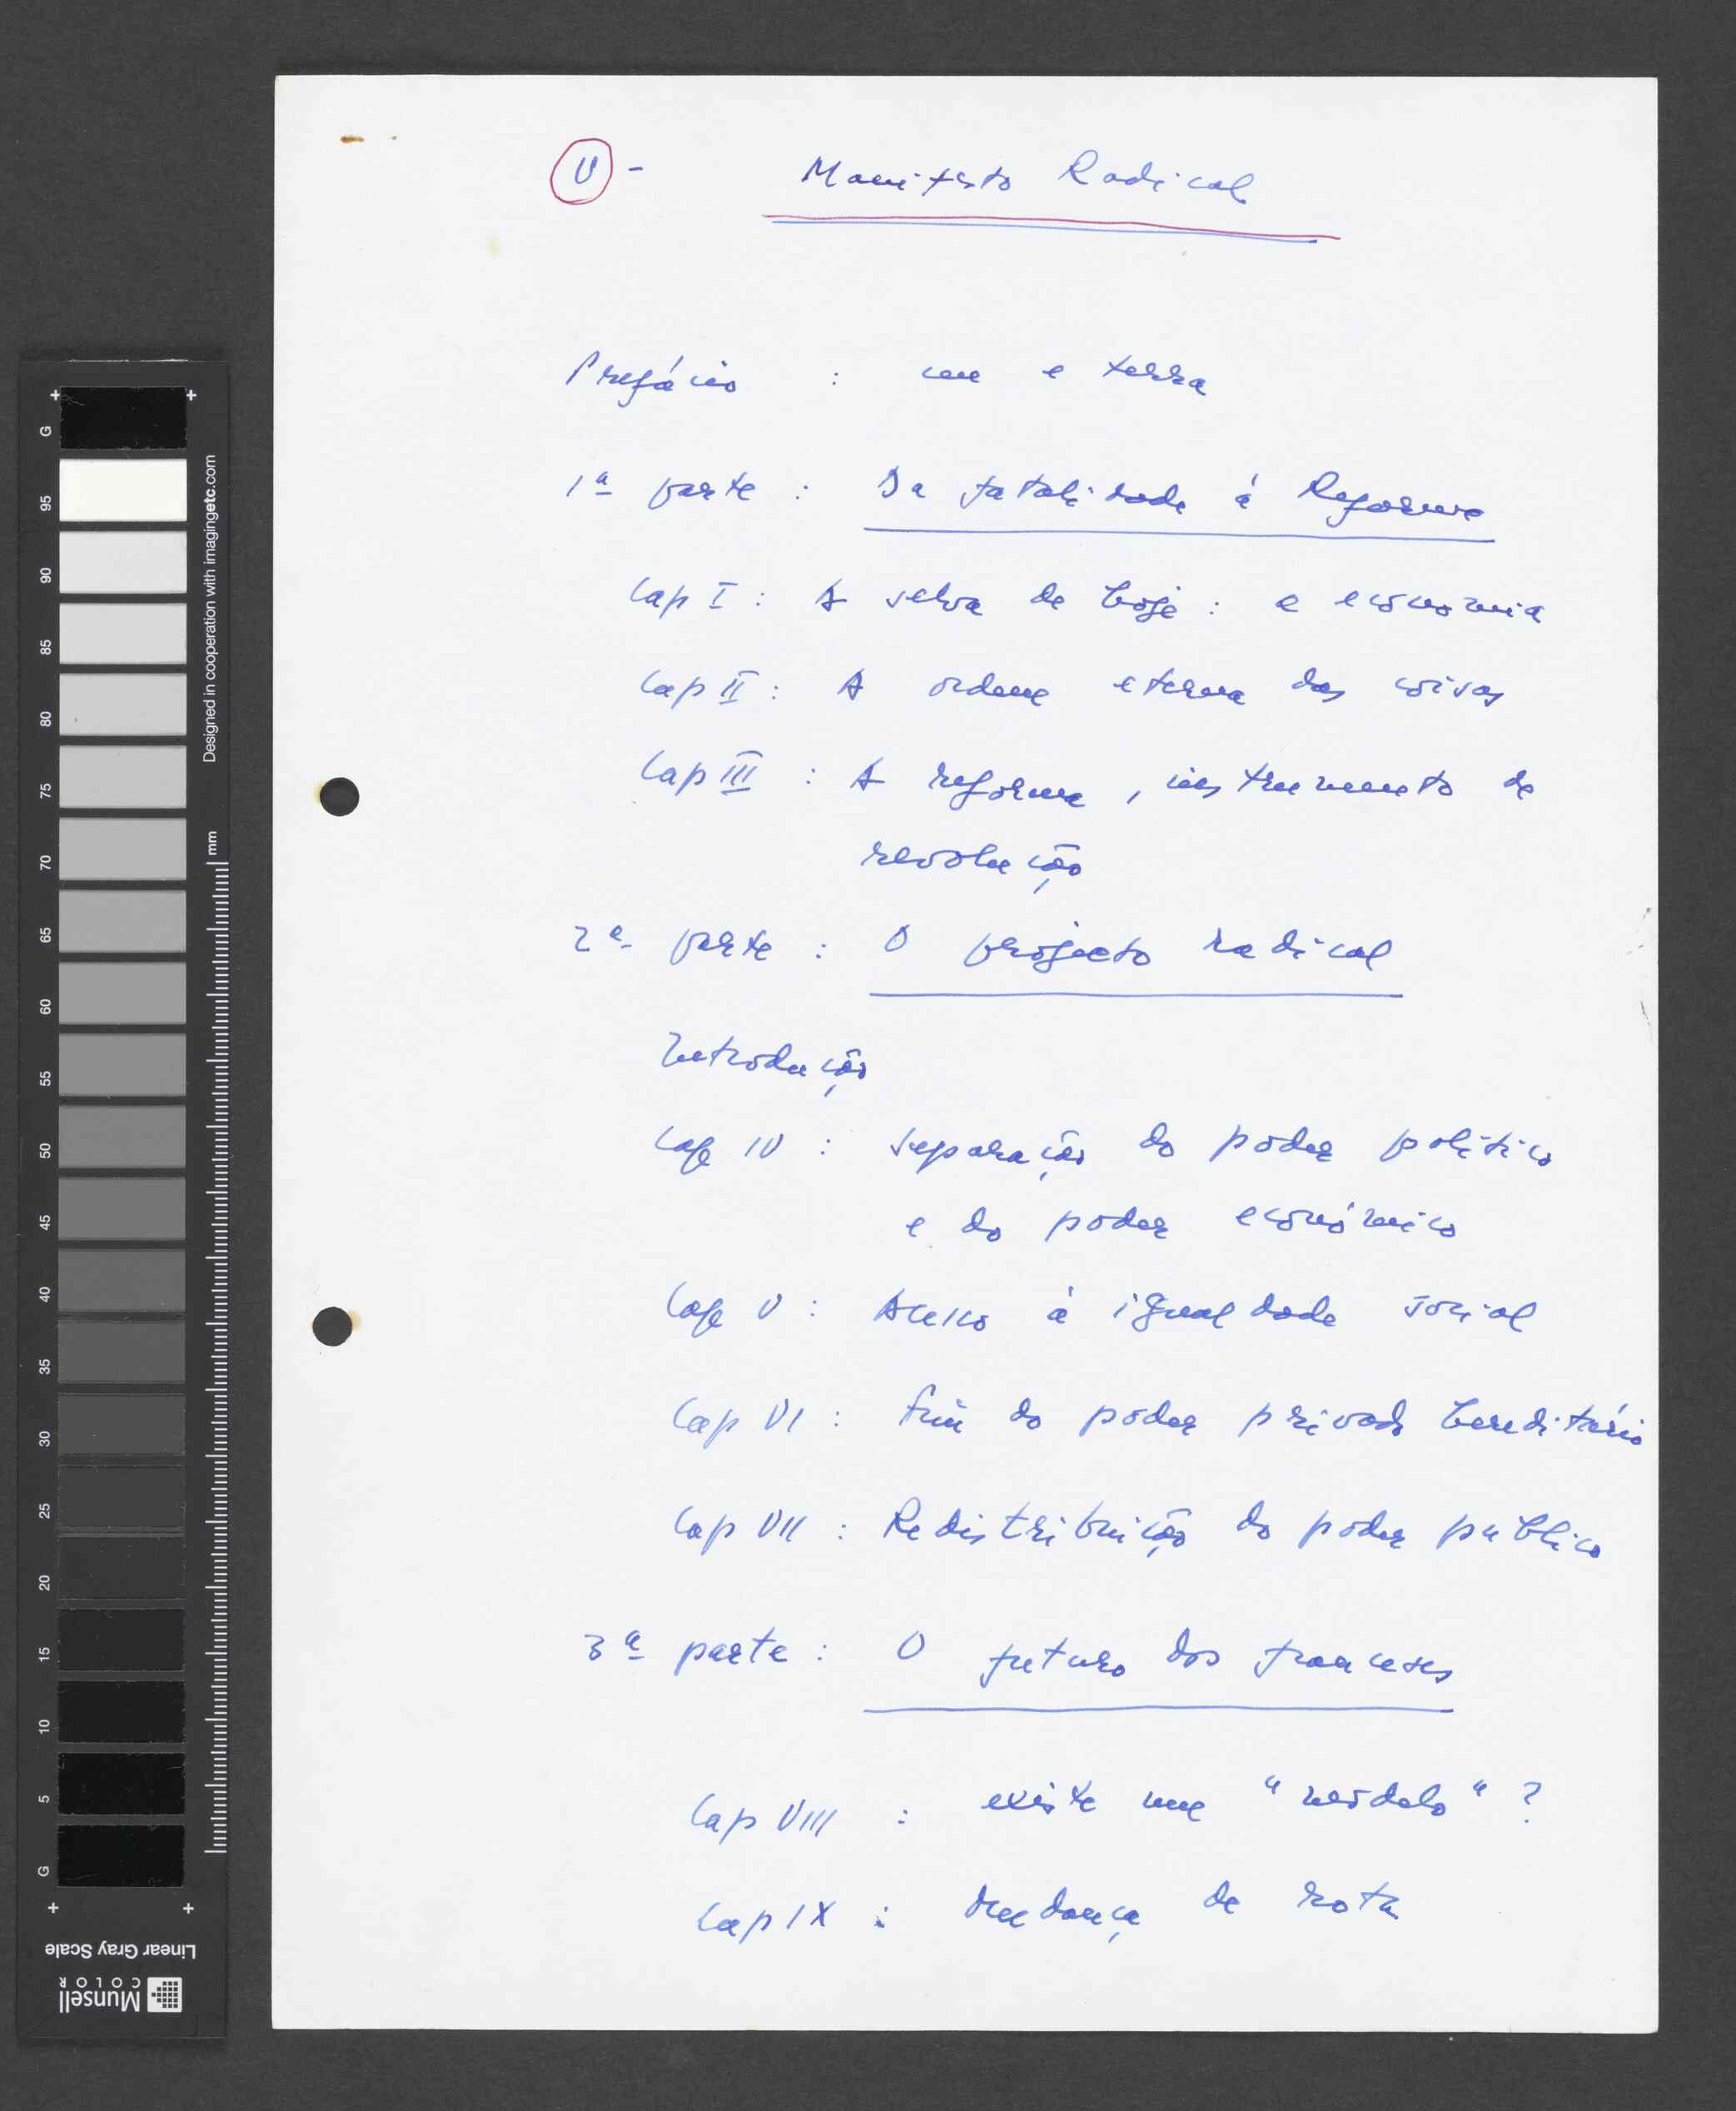 V - Manifesto Radical
Prefácio : céu e terra
1ª parte : Da fatalidade á Reforma
Cap I : A selva de hoje : a economia
Cap II : A ordem eterna das coisas
Cap III : A reforma, instrumento de
revolução
2ª parte : O projecto radical
Introdução
Cap IV : separação do poder político
e do poder económico
Cap V : Acesso à igualdade social
Cap VI : fim do poder privado hereditário
Cap VII : Redistribuição do poder público
3ª parte : O futuro dos franceses
Cap VIII : existe um "modelo" ?
Cap IX : mudança de rota
G 95 90 85 80 75 70 65 60 55 50 45 40 35 30 25 20 15 10 5 G
Designed in cooperation with imagingetc.com
mm
Linear Gray Scale
Munsell
COLOR